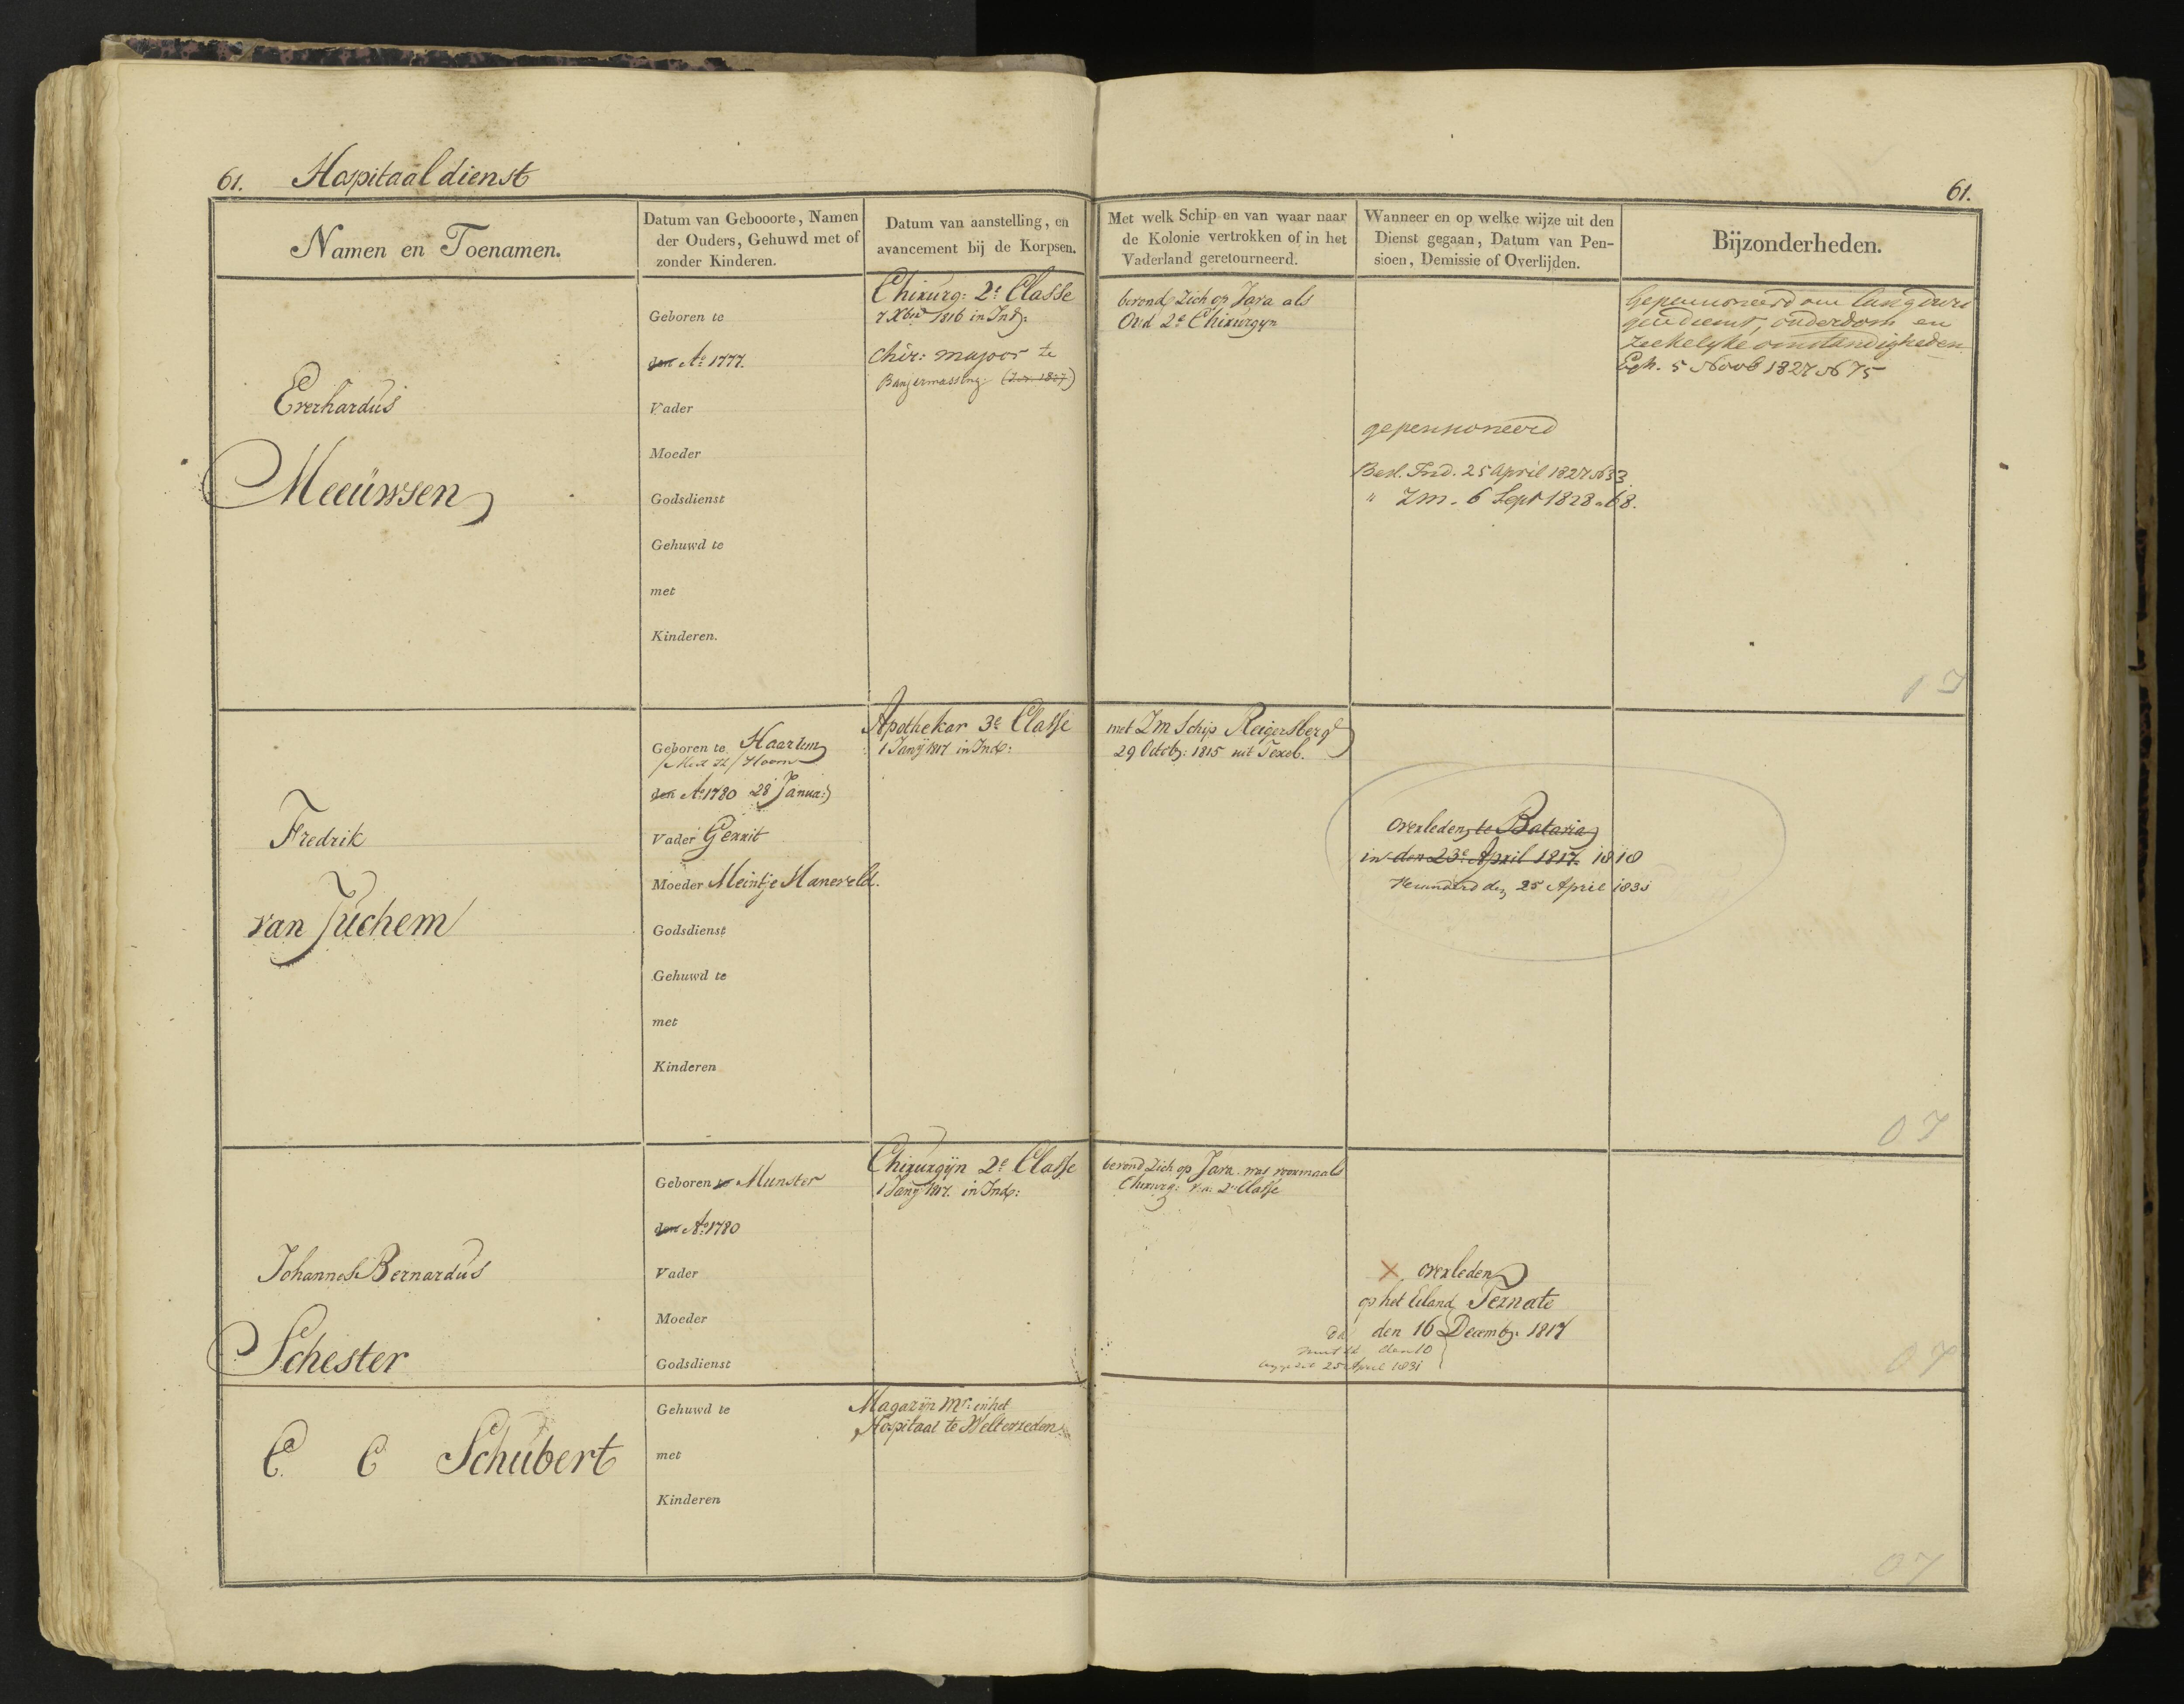 61. Hospitaal dienst
61.
Namen en Toenamen.
Datum van Gebooorte, Namen
der Ouders, Gehuwd met of
zonder Kinderen.
Datum van aanstelling, en
avancement bij de Korpsen.
Met welk Schip en van waar naar
de Kolonie vertrokken of in het
Vaderland geretourneerd.
Wanneer en op welke wijze uit den
Dienst gegaan, Datum van Pen-
sioen, Demissie of Overlijden.
Bijzonderheden.
Everhardus
Meeüwsen
Geboren te
den Ao 1777.
Vader
Moeder
Godsdienst
Gehuwd te
met
Kinderen.
Chirurg: 2e Classe
7 Xber 1816 in Ind:
Chir: majoor te
Banjermassing
bevond zich op Java als
Ord 2e Chirurgyn
gepensioneerd
Besl. Ind. 25 April 1827 No 33.
" ZM. 6 Sept 1828 " 68.
Gepensioneerd om langdurigen
dienst, ouderdom en
ziekelyke omstandigheden
5 Novb 1827 No 75
Fredrik
van Juchem
Geboren te Haarlem
Hoorn
den Ao 1780 28 Janua:
Vader Gerrit
Moeder Meintje Maneveld.
Godsdienst
Gehuwd te
met
Kinderen
Apothekar 3e Classe
1 Jany 1817 in Ind:
met ZM Schip Reigersberg
29 Octob: 1815 uit Texel.
Overleden te Batavia
in den 23e April 1817. 1818
den 25 April 1831
Johannes Bernardus
Schester
Geboren te Munster
den Ao 1780
Vader
Moeder
Godsdienst
Chirurgijn 2e Classe
1 Jany 1817. in Ind:
bevond zich op Java was voormaals
Chirurg: 2e Classe
X overleden
op het Eiland Ternate
den 16 Decemb: 1817
den 10
25 April 1831
C. C Schubert
Gehuwd te
met
Kinderen
Magazijn Mr: in het
Hospitaal te Weltevreden